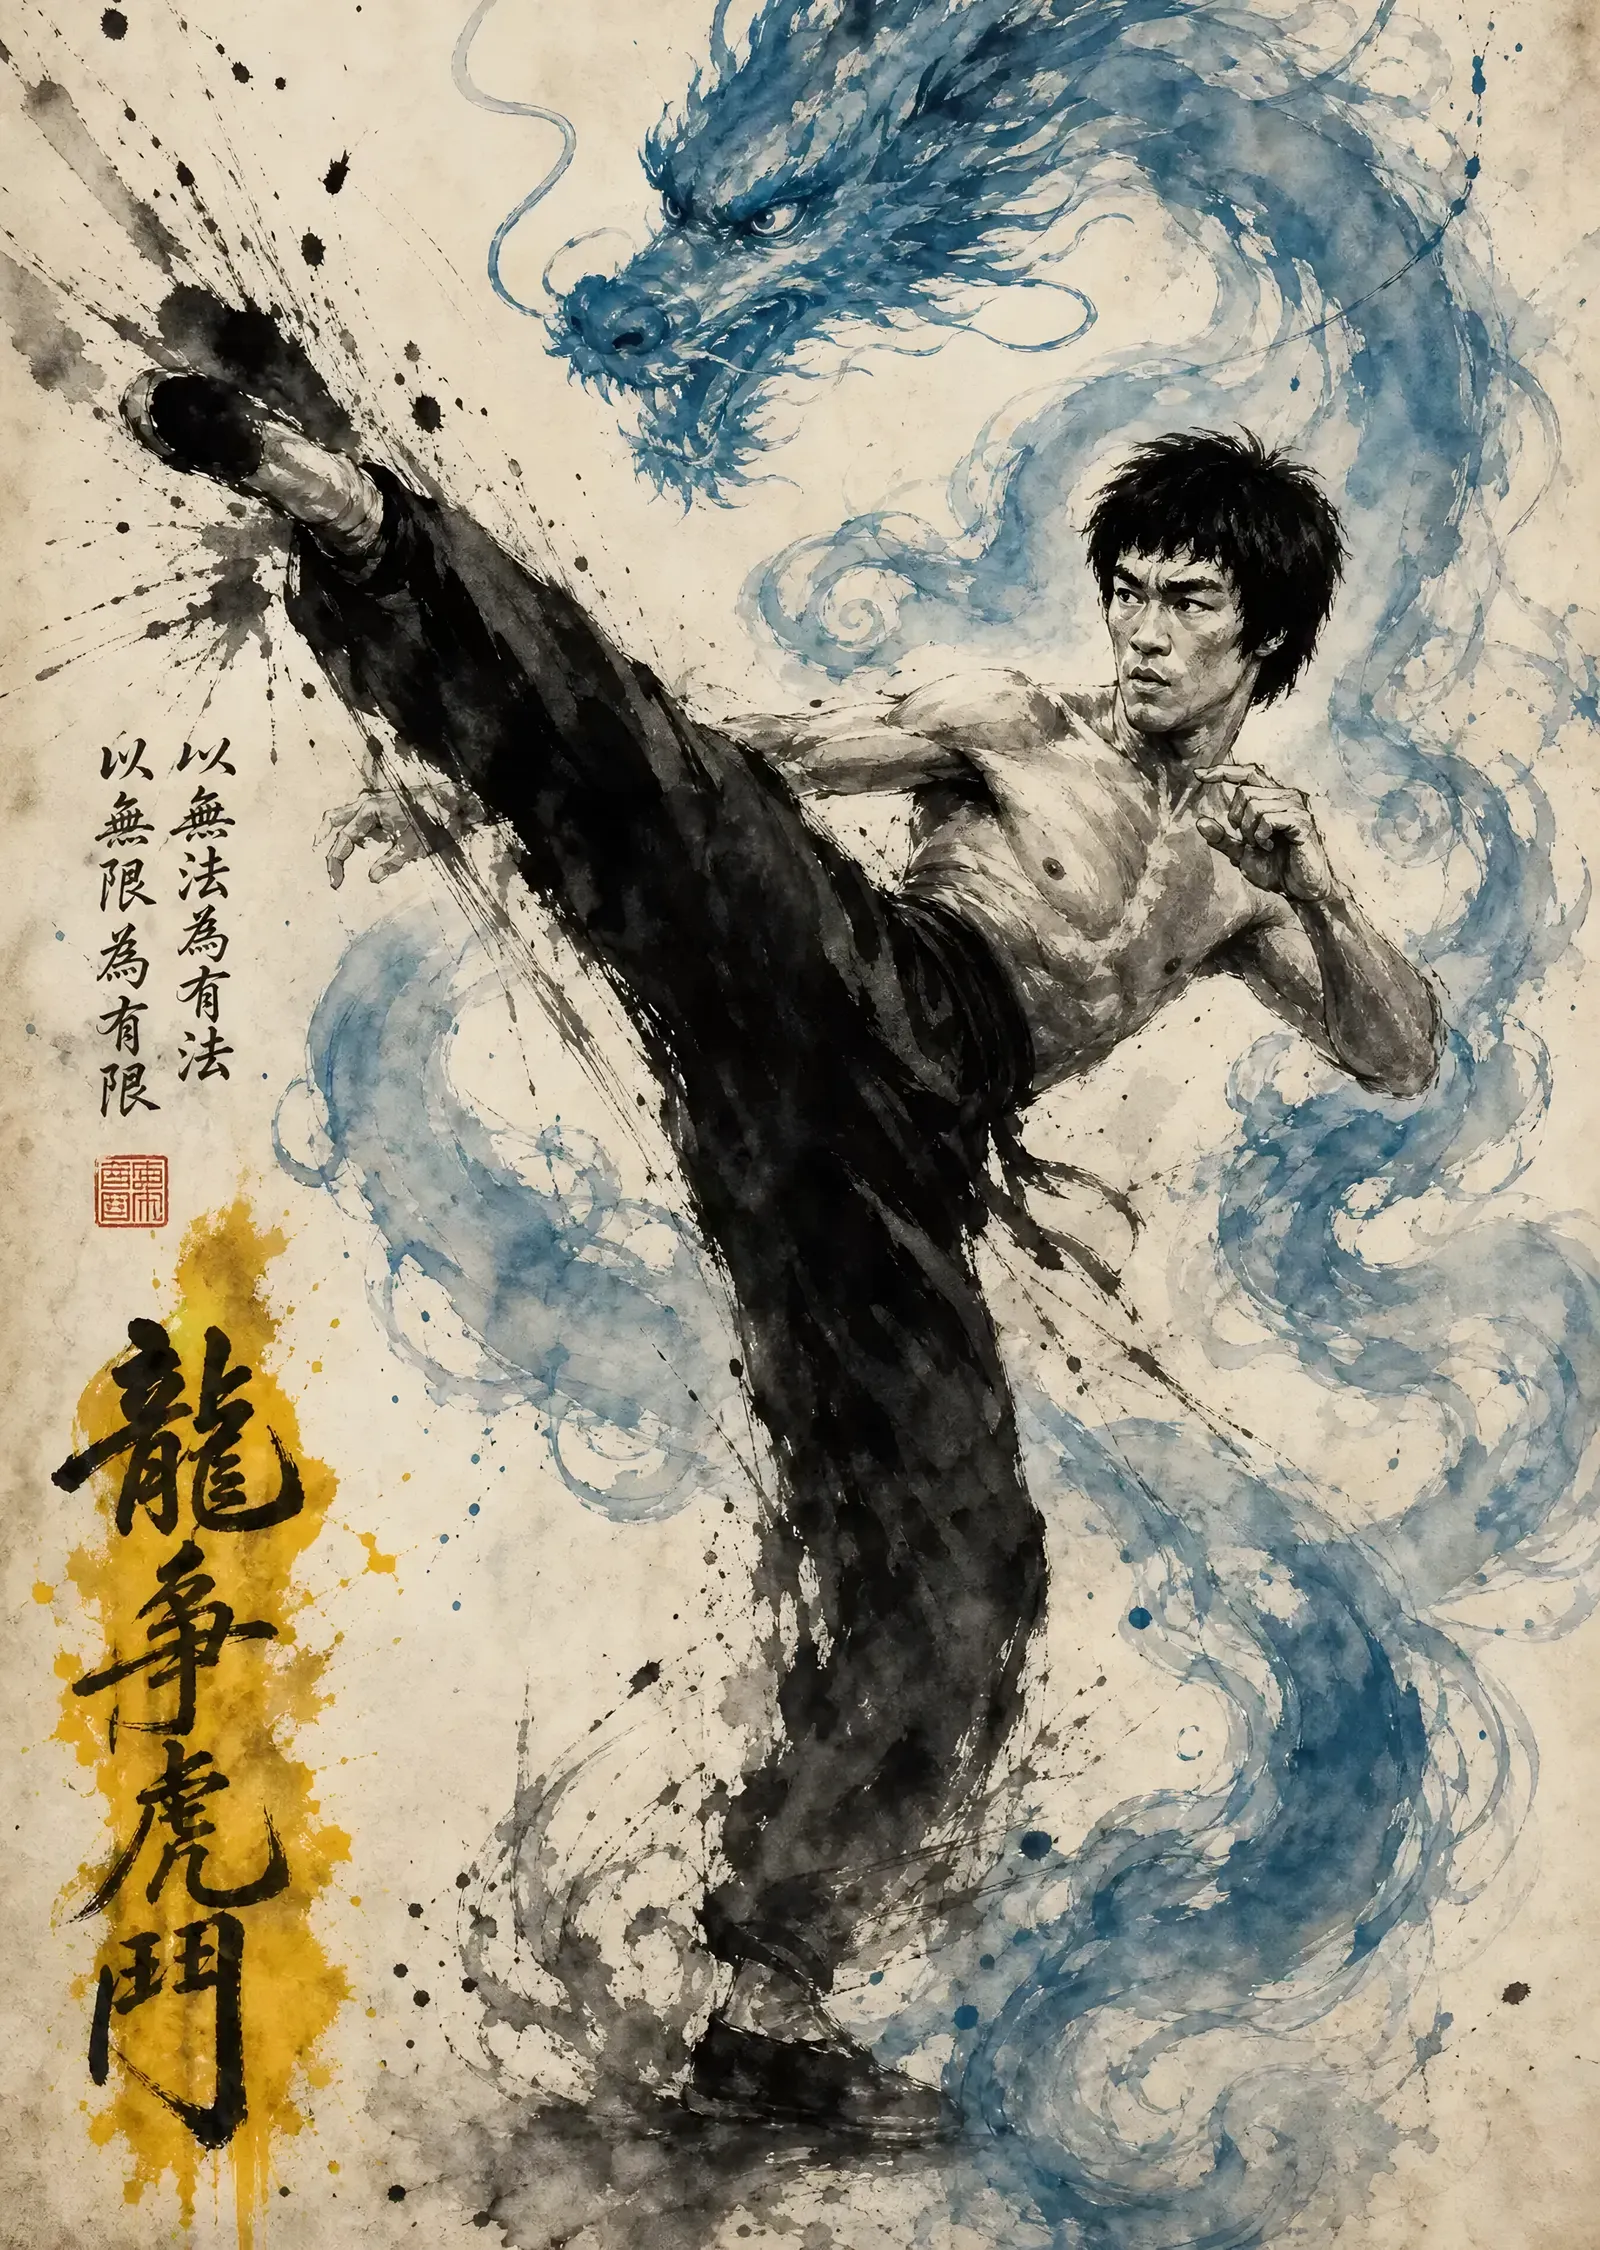 以無法為有法
以無限為有限
龍爭虎鬥